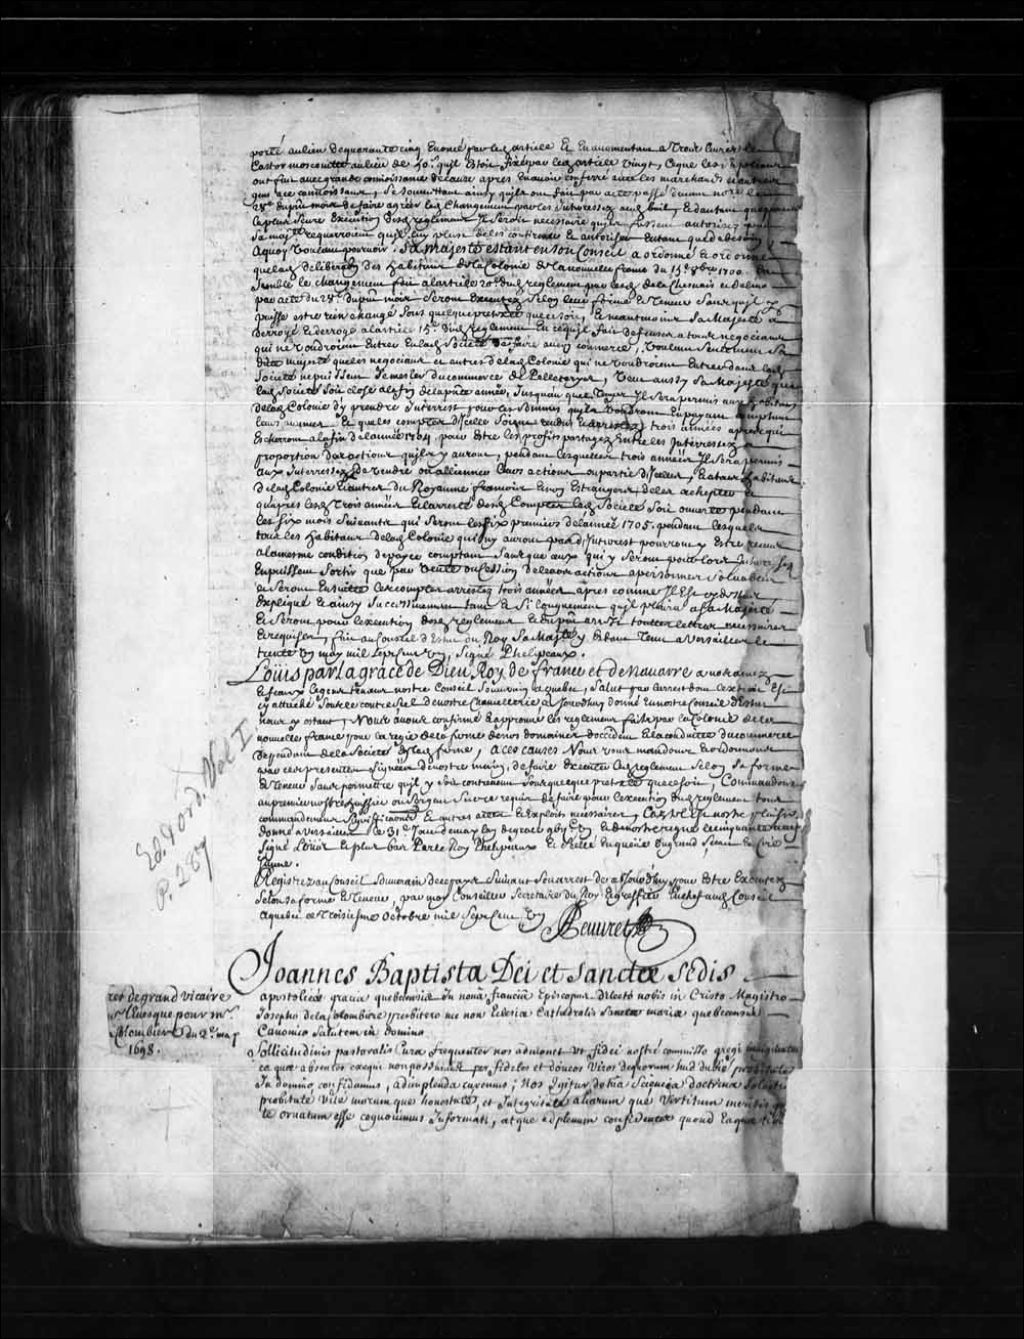 porté aulieu dequarante cinq Enoncé par led article Et En augmentant a Trois livres le
Castor moscovitte aulieu de 40s quil Estoit fixé par led article vingt, Ceque les
ont fait avec grande connoissance decause apres Enavoir conferé avec les marchands
gens ace connoissans, Se soumettant ainsy quils ont fait par acte passé devant nore le
28e dupnt mois defaire agréer led Changement par les Interessez aud bail, Et dautant que pour
la plus seure Execution desd reglemens Il seroit necessaire quils fussent autorisez par
Sa Majté requerroient quil luy plust deles confirmer Et autoriser Entant quil debesoin
Aquoy Voulant pourvoir. Sa Majesté estant en son Conseil a ordonné Et ordonne
quelad deliberaon des habitans dela Colonie dela nouvelle france du 15e 8bre 1700. En
semble le changement fait alarticle 20e dud reglement par lesd dela Chesnais et Delino
par acte du 28e dupnt mois seront Executez Selon leur forme Et Teneur Sans quil y
puisse estre rien changé Sous quelque pretexte que ce soit, Et neantmoins Sa Majesté a
derrogé Et derroge alarticle 15e dud Reglement En ce quil fait defenses atous negocians
qui ne voudroient Entrer En lad Societé defaire aucun commerce, Voulant seulement Sa
dite majesté queles negocians et autres delad Colonie qui ne voudroient Entrer dans lad
Societé nepuissent Se mesler ducommerce de Pelleteryes, Veut aussy Sa Majesté que
lad Societé Soit close alafin delapnte année, Jusquau quel temps Il sera permis aux habitans
delad Colonie dy prendre Interrest pour les sommes quils voudront En payant comptant
leurs mises Et queles comptes dicelle Soient rendus Et arrestez trois années apres qui
Escherront alafin de lannée 1704. pour Estre les profits partagez Entre les Interressez a
proportion des actions quils y auront, pendant lesquelles trois années Il sera permis
aux Interressez de vendre ou alliener leurs actions ou partie dicelles, Et atous habitans
delad Colonie Et autres du Royaume francois Et non Estrangers deles achepter Et
quapres lesd Trois années Et larresté desd Comptes lad Societé Soit ouverte pendant
les six mois suivants qui seront les six premiers delannée 1705. pendant lesquels
tous les habitans delad Colonie qui ny auront pas dInterrest pourront y Estre receus
alamesme condition depayer comptant Sans que ceux qui y seront pour lors Interressez
En puissent Sortir que par Vente ou Cession deleurs actions apersonnes Solvables
Et seront Ensuitte les comptes arrestez trois années apres comme Il Est cy dessus
Expliqué Et ainsy Successivement tant Et Si longuement quil plaira a Sa Majesté
Et seront pour lexecution desd reglemens Et dupnt arrest toutes lettres necessaires
Et requises, fait au Conseil dEstat du Roy Sa Majté y Estant Tenu aVersailles le
trente Un may mil sept cent Un, Signé Phelipeaux.
Loüis par la grace de Dieu Roy de france et de Navarre a nos amez
Et feaux Lesgens tenans nostre Conseil Souverain aquebec, Salut par larrest dont lextrait Est
cy attaché Sous le contrescel denostre Chancellerie cejourdhuy donné En nostre Conseil dEstat
nous y estant, Nous avons confirmé Et approuvé les reglemens faits par la Colonie dela
nouvelle france pour la regie dela ferme denos domaines doccident Et la conduitte ducommerce
dependant dela Societé Et lad ferme, A ces causes Nous vous mandons Et ordonnons
par ces presentes signées denostre main, defaire executer lesd reglemens selon sa forme
Et Teneur Sans permettre quil y soit contrevenu Sous quelque pretexte que ce soit, Commandons
au premier nostre huissier ou Sergent sur ce requis de faire pour lexecution dud reglement tous
commandemens Significaons Et autres actes Et Exploits necessaires, Car tel Est nostre plaisir
donné a Versailles le 31e Jour demay lan degrace 1701 Et denostre regne le cinquante neuf
Signé Loüis Et plus bas Par le Roy Phelipeaux Et Scellé En queüe du grand sceau En Cire
Jaune.
Registrez au Conseil Souverain de ce pays suivant Son arrest de ce Jourdhuy pour Estre Executez
selon sa forme Et Teneur, par moy Conseiller Secretaire du Roy Et greffier En chef aud Conseil
Aquebec ce Troisiesme Octobre mil Sept Cent Un
Peuvret
Ed. & Ord. Vol I
P. 287
Joannes Baptista Dei et sanctæ sedis
apostolicæ gracia quebecensis In nova francia Episcopus Dilecto nobis in Cristo Magistro
Josepho dela Colombiere presbitero nec non Eclesiæ Cathedralis sanctæ mariæ quebecensis
Canonico Salutem in domino
de grand vicaire
l'Evesque pour Mr
Colombiere du 2e may
1698.
Sollicitudinis pastoralis Cura frequenter nos admonet Ut fidei nostræ commisso gregi
ea quæ absentes exequi non possumus per fideles et doctos Viros de quorum haud dubie probitate
In domino confidamus, adimplenda curemus; Nos Igitur de tua Sciencia doctrina
probitate vitæ morumque honestate, et Integritate aliarum que Virtutum meritis
te ornatum esse cognovimus Informati, atque ad plenum confidentes quod Ea quæ tibi